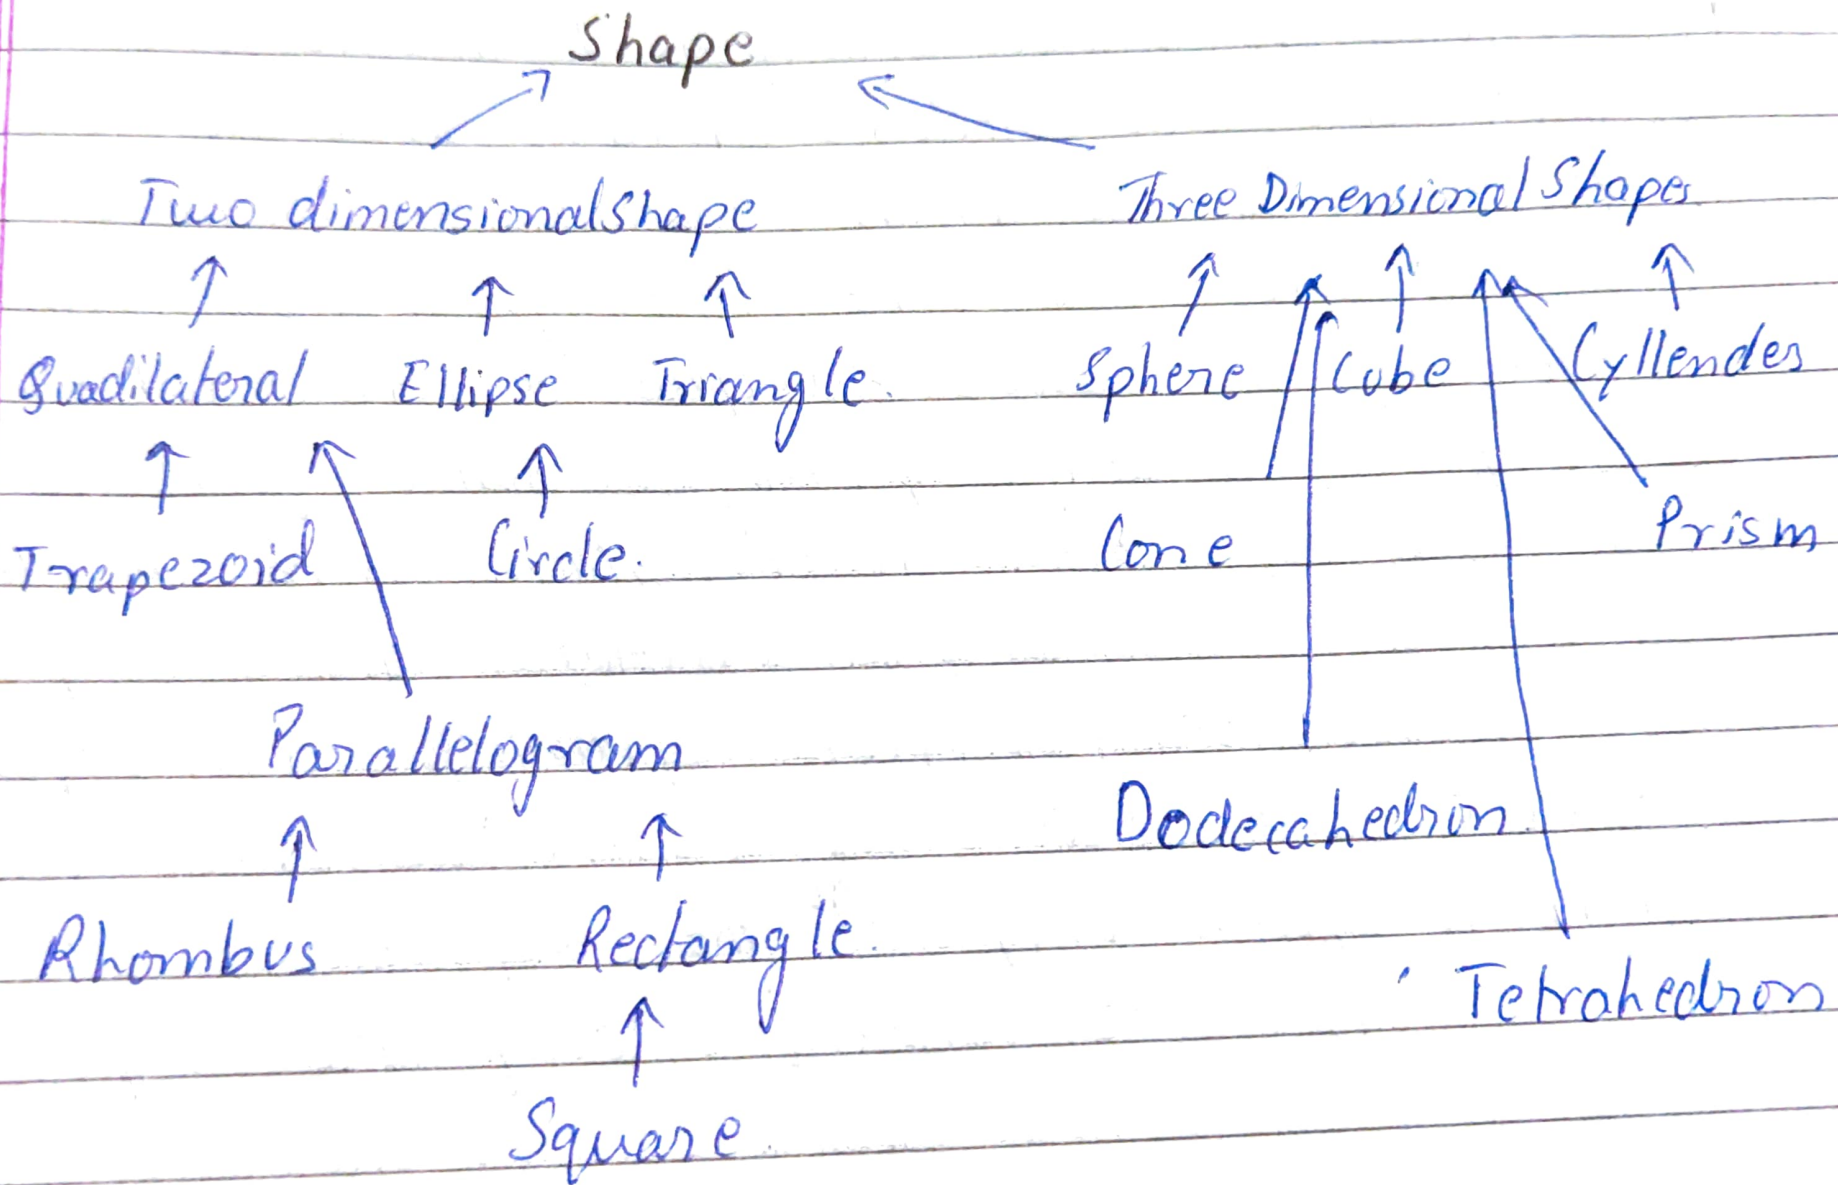 Shape
Two dimensionalShape Three Dimensional Shapes
Quadilateral Ellipse Triangle. Sphere Cube Cyllendes
Trapezoid Circle. Cone Prism
Parallelogram
Dodecahedron
Rhombus Rectangle. Tetrahedron
Square